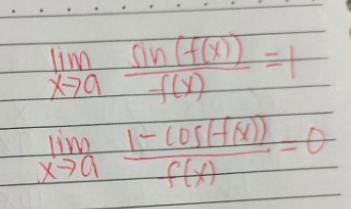 lim x→a sin(f(x))/f(x) = 1
lim x→a 1-cos(f(x))/f(x) = 0